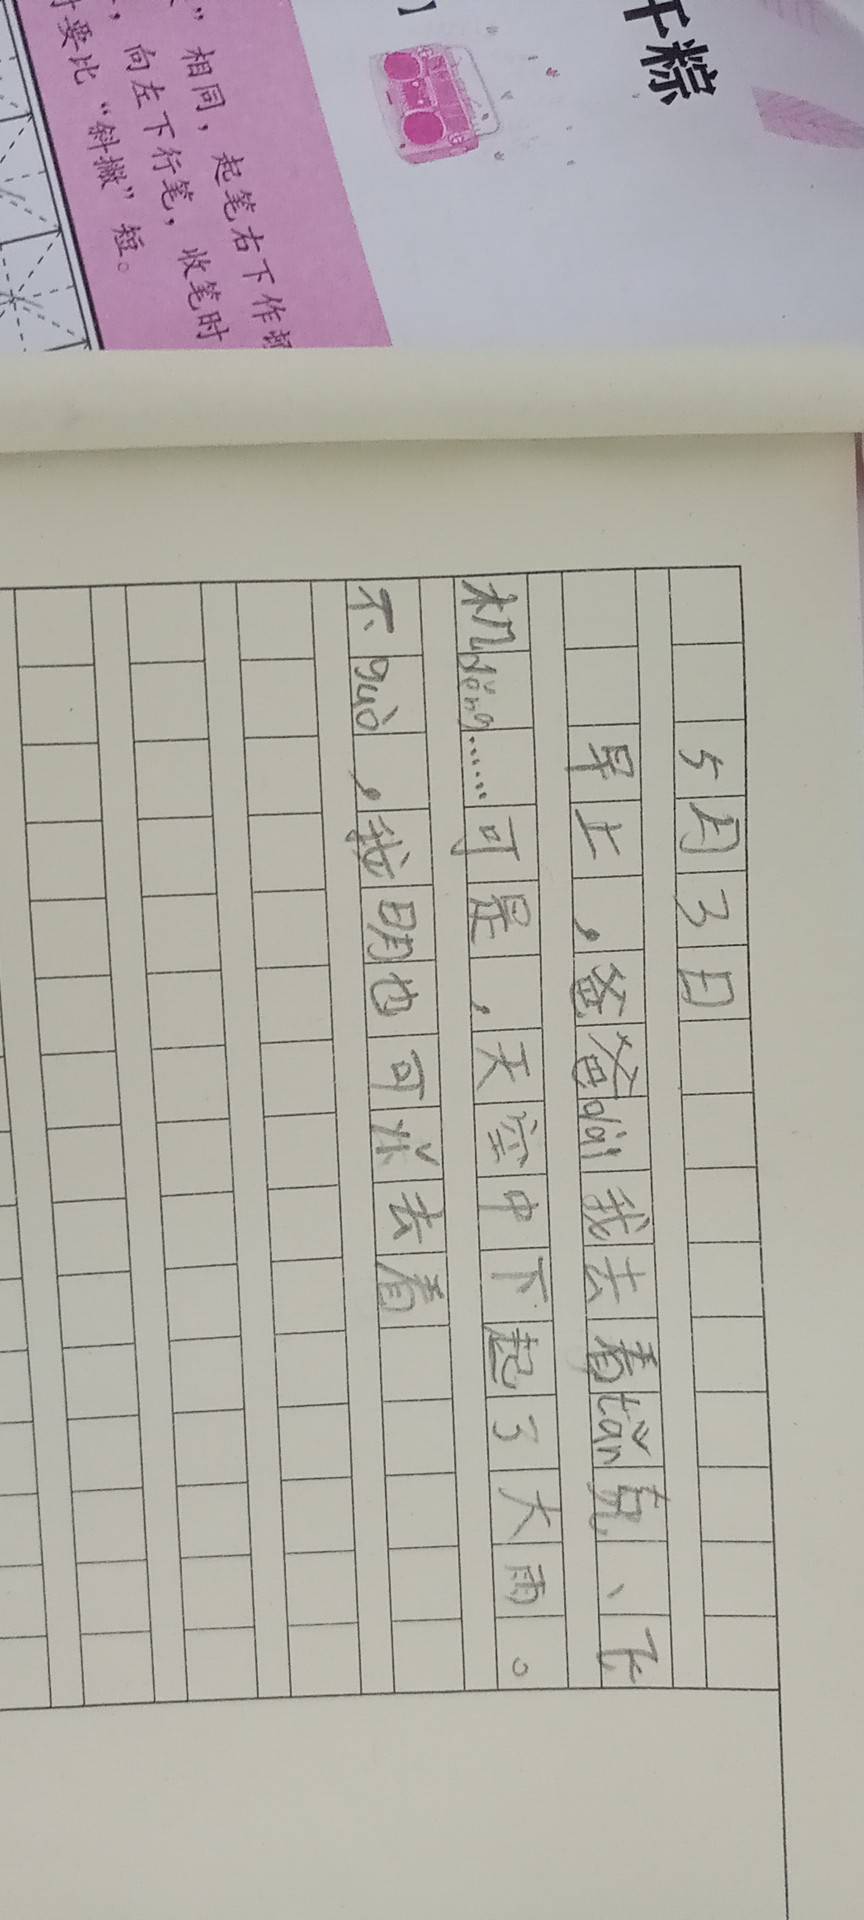 干粽
】
”相同，起笔右下作顿
，向左下行笔，收笔时
要比“斜撇”短。
5月3日
早上，爸爸dài我去看tǎn克、飞
机děng……可是，天空中下起了大雨。
不guò，我明也可以去看